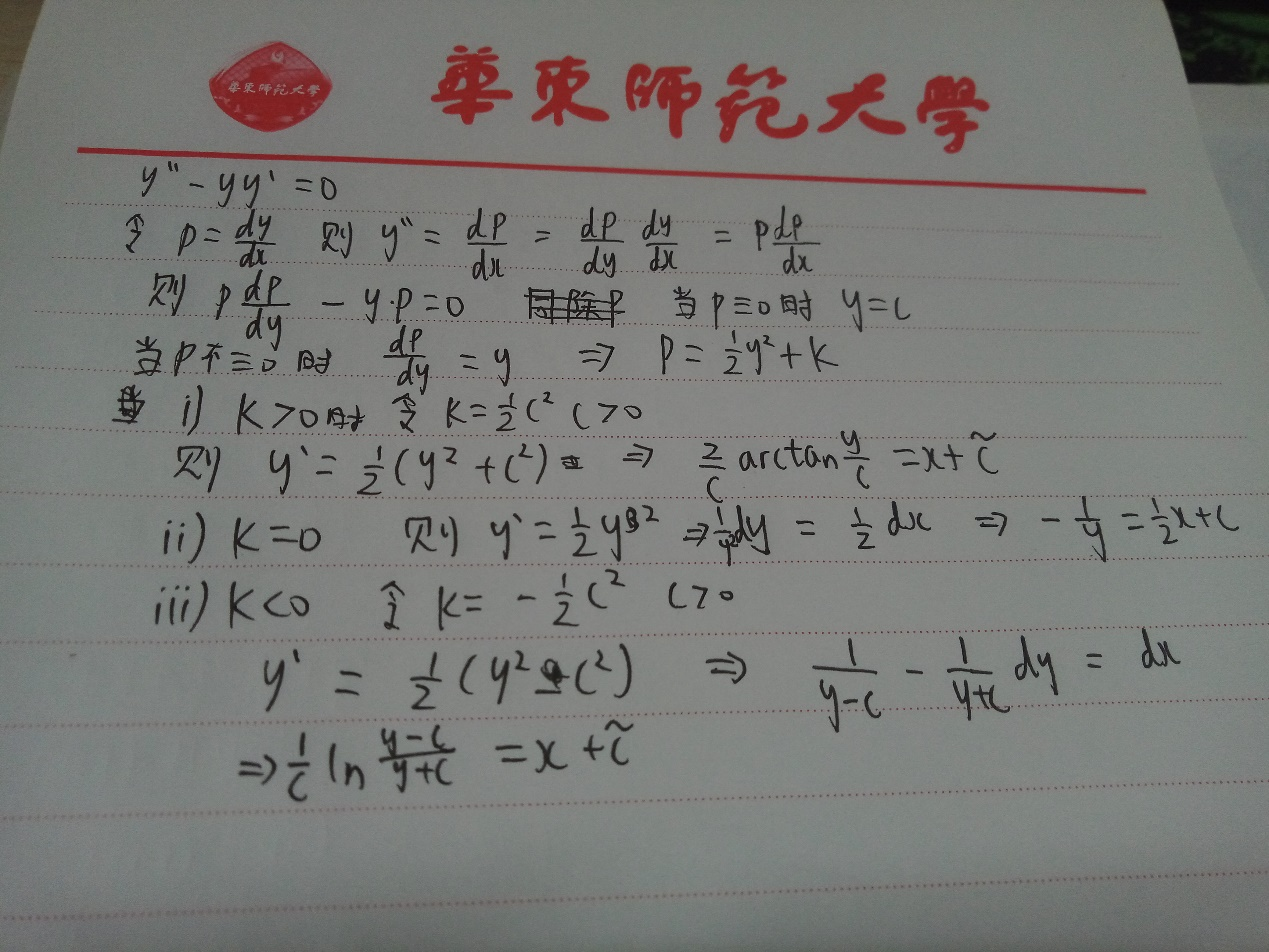 華東師範大學
華東師範大學
y'' - yy' = 0
令 p = dy/dx 则 y'' = dp/dx = dp/dy dy/dx = p dp/dx
则 p dp/dy - y·p = 0 同除p 当 p≡0时 y=c
当p不≡0时 dp/dy = y ⇒ p = 1/2 y² + k
i) k>0时 令 k = 1/2 c² c>0
则 y' = 1/2 (y² + c²) ⇒ 2/c arctan y/c = x + c̃
ii) k=0 则 y' = 1/2 y² ⇒ 1/y² dy = 1/2 dx ⇒ - 1/y = 1/2 x + c
iii) k<0 令 k = - 1/2 c² c>0
y' = 1/2 (y² - c²) ⇒ 1/(y-c) - 1/(y+c) dy = dx
⇒ 1/c ln (y-c)/(y+c) = x + c̃